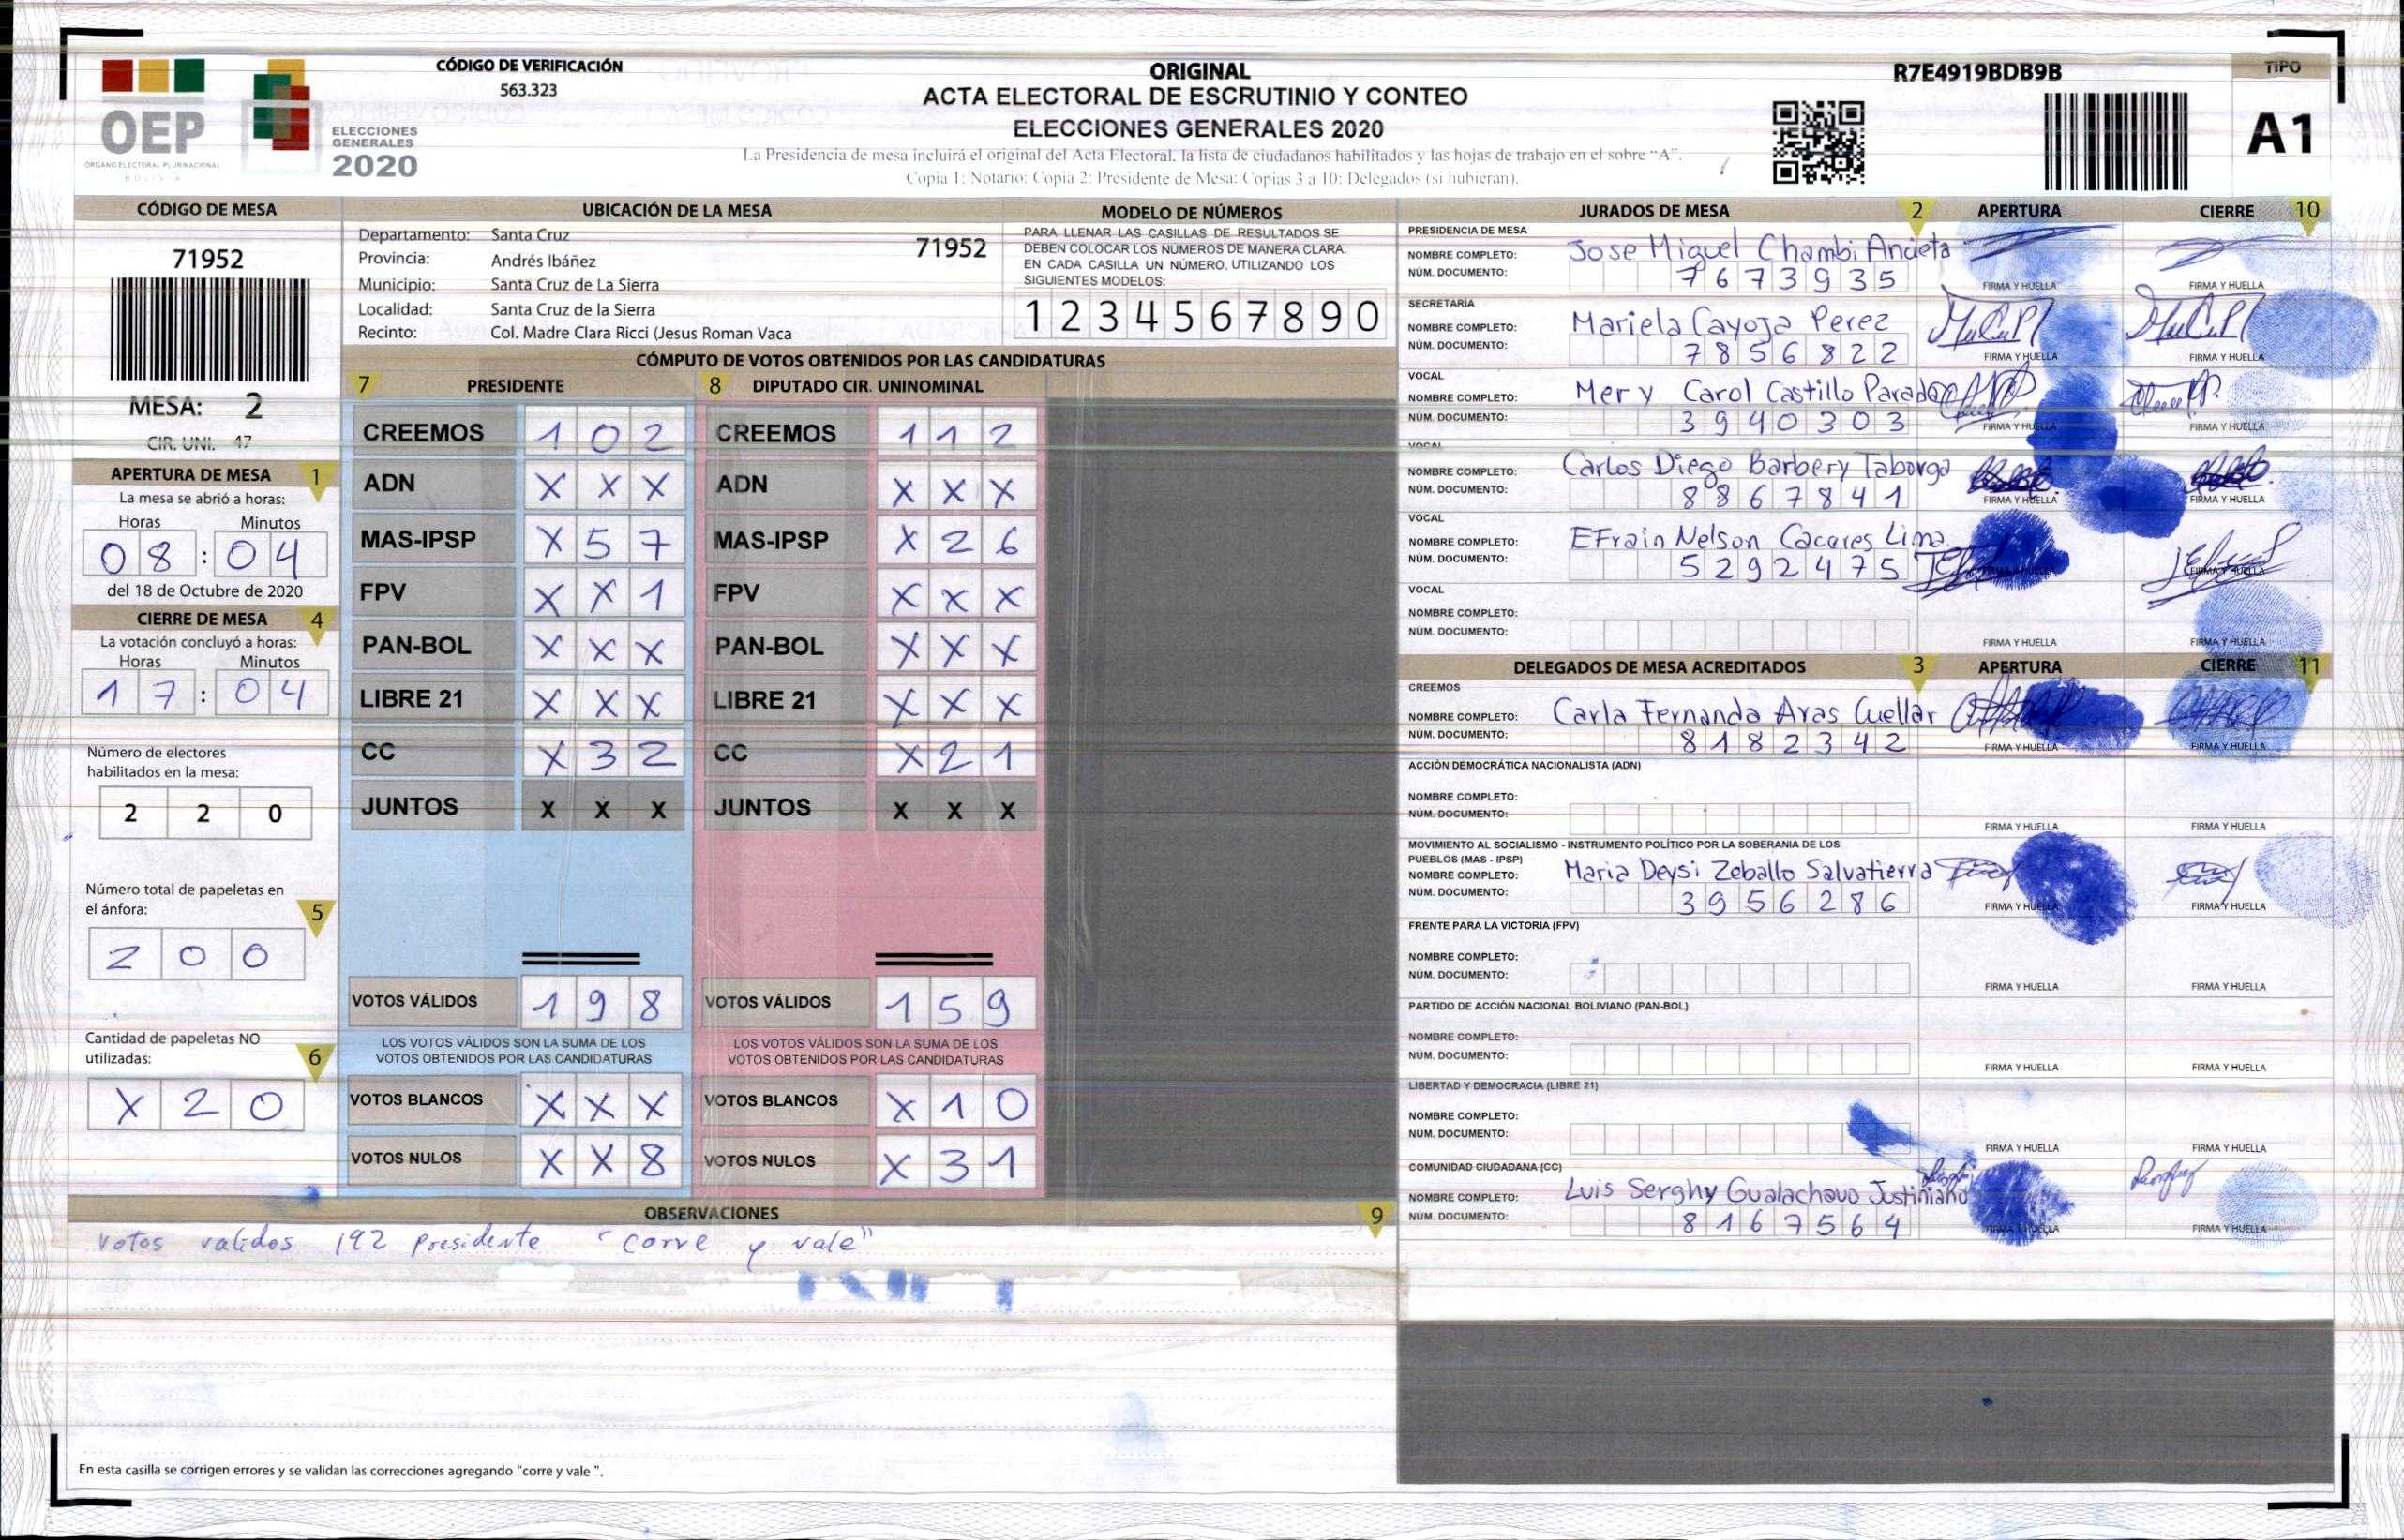 OEP
ÓRGANO ELECTORAL PLURINACIONAL
BOLIVIA
ELECCIONES
GENERALES
2020
CÓDIGO DE VERIFICACIÓN
563.323
ORIGINAL
ACTA ELECTORAL DE ESCRUTINIO Y CONTEO
ELECCIONES GENERALES 2020
La Presidencia de mesa incluirá el original del Acta Electoral, la lista de ciudadanos habilitados y las hojas de trabajo en el sobre "A".
Copia 1: Notario; Copia 2: Presidente de Mesa; Copias 3 a 10: Delegados (si hubieran).
R7E4919BDB9B
TIPO
A1
CÓDIGO DE MESA
71952
MESA: 2
CIR. UNI. 47
UBICACIÓN DE LA MESA
Departamento: Santa Cruz
71952
Provincia: Andrés Ibáñez
Municipio: Santa Cruz de La Sierra
Localidad: Santa Cruz de la Sierra
Recinto: Col. Madre Clara Ricci (Jesus Roman Vaca
MODELO DE NÚMEROS
PARA LLENAR LAS CASILLAS DE RESULTADOS SE
DEBEN COLOCAR LOS NÚMEROS DE MANERA CLARA.
EN CADA CASILLA UN NÚMERO, UTILIZANDO LOS
SIGUIENTES MODELOS:
1 2 3 4 5 6 7 8 9 0
APERTURA DE MESA 1
La mesa se abrió a horas:
Horas Minutos
08 : 04
del 18 de Octubre de 2020
CIERRE DE MESA 4
La votación concluyó a horas:
Horas Minutos
17 : 04
Número de electores
habilitados en la mesa:
2 2 0
Número total de papeletas en
el ánfora: 5
2 0 0
Cantidad de papeletas NO
utilizadas: 6
X 2 0
CÓMPUTO DE VOTOS OBTENIDOS POR LAS CANDIDATURAS
7 PRESIDENTE 8 DIPUTADO CIR. UNINOMINAL
CREEMOS 1 0 2 CREEMOS 1 1 2
ADN X X X ADN X X X
MAS-IPSP X 5 7 MAS-IPSP X 2 6
FPV X X 1 FPV X X X
PAN-BOL X X X PAN-BOL X X X
LIBRE 21 X X X LIBRE 21 X X X
CC X 3 2 CC X 2 1
JUNTOS X X X JUNTOS X X X
VOTOS VÁLIDOS 1 9 8 VOTOS VÁLIDOS 1 5 9
LOS VOTOS VÁLIDOS SON LA SUMA DE LOS LOS VOTOS VÁLIDOS SON LA SUMA DE LOS
VOTOS OBTENIDOS POR LAS CANDIDATURAS VOTOS OBTENIDOS POR LAS CANDIDATURAS
VOTOS BLANCOS X X X VOTOS BLANCOS X 1 0
VOTOS NULOS X X 8 VOTOS NULOS X 3 1
OBSERVACIONES 9
votos validos 192 presidente "corre y vale"
En esta casilla se corrigen errores y se validan las correcciones agregando "corre y vale ".
JURADOS DE MESA 2 APERTURA CIERRE 10
PRESIDENCIA DE MESA
NOMBRE COMPLETO: Jose Miguel Chambi Ancieta
NÚM. DOCUMENTO: 7673935
FIRMA Y HUELLA FIRMA Y HUELLA
SECRETARÍA
NOMBRE COMPLETO: Mariela Cayoja Perez
NÚM. DOCUMENTO: 7856822
FIRMA Y HUELLA FIRMA Y HUELLA
VOCAL
NOMBRE COMPLETO: Mery Carol Castillo Parada
NÚM. DOCUMENTO: 3940303
FIRMA Y HUELLA FIRMA Y HUELLA
VOCAL
NOMBRE COMPLETO: Carlos Diego Barbery Taborga
NÚM. DOCUMENTO: 8867841
FIRMA Y HUELLA FIRMA Y HUELLA
VOCAL
NOMBRE COMPLETO: EFrain Nelson Cacares Lima
NÚM. DOCUMENTO: 5292475
FIRMA Y HUELLA FIRMA Y HUELLA
VOCAL
NOMBRE COMPLETO:
NÚM. DOCUMENTO:
FIRMA Y HUELLA FIRMA Y HUELLA
DELEGADOS DE MESA ACREDITADOS 3 APERTURA CIERRE 11
CREEMOS
NOMBRE COMPLETO: Carla Fernanda Aras Cuellar
NÚM. DOCUMENTO: 8182342
FIRMA Y HUELLA FIRMA Y HUELLA
ACCIÓN DEMOCRÁTICA NACIONALISTA (ADN)
NOMBRE COMPLETO:
NÚM. DOCUMENTO:
FIRMA Y HUELLA FIRMA Y HUELLA
MOVIMIENTO AL SOCIALISMO - INSTRUMENTO POLÍTICO POR LA SOBERANIA DE LOS
PUEBLOS (MAS - IPSP)
NOMBRE COMPLETO: Maria Deysi Zeballo Salvatierra
NÚM. DOCUMENTO: 3956286
FIRMA Y HUELLA FIRMA Y HUELLA
FRENTE PARA LA VICTORIA (FPV)
NOMBRE COMPLETO:
NÚM. DOCUMENTO:
FIRMA Y HUELLA FIRMA Y HUELLA
PARTIDO DE ACCIÓN NACIONAL BOLIVIANO (PAN-BOL)
NOMBRE COMPLETO:
NÚM. DOCUMENTO:
FIRMA Y HUELLA FIRMA Y HUELLA
LIBERTAD Y DEMOCRACIA (LIBRE 21)
NOMBRE COMPLETO:
NÚM. DOCUMENTO:
FIRMA Y HUELLA FIRMA Y HUELLA
COMUNIDAD CIUDADANA (CC)
NOMBRE COMPLETO: Luis Serghy Gualachavo Justiniano
NÚM. DOCUMENTO: 8167564
FIRMA Y HUELLA FIRMA Y HUELLA